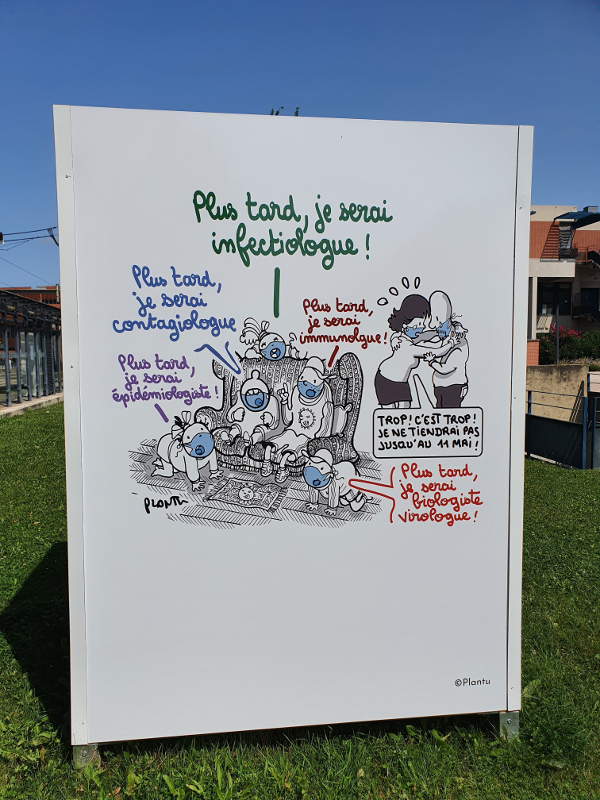 Plus tard, je serai
infectiologue !
Plus tard,
je serai
contagiologue
Plus tard,
je serai
immunolgue !
Plus tard,
je serai
épidémiologiste !
TROP ! C'EST TROP !
JE NE TIENDRAI PAS
JUSQU'AU 11 MAI !
Plus tard,
je serai
biologiste
virologue !
PLANTU
©Plantu